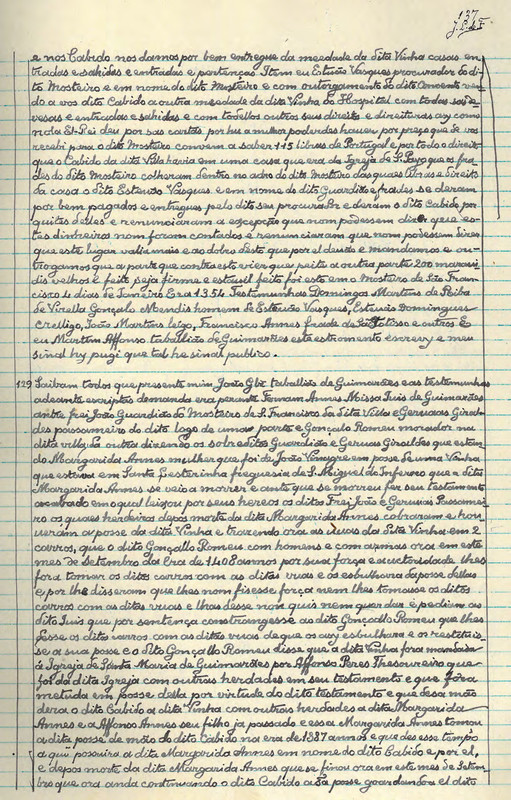 137
e nos Cabido nos damos por bem entregue da meadade da dita Vinha casas en-
tradas e sahidas e entradas e pertenças Item eu Estevão Vasques procurador do di-
to Mosteiro e em nome do dito Mosteiro e com outorgamento do dito Concento ven-
do a vos dito Cabido a outra meadade da dita Vinha do Hospital com todas sas de-
vesas e entradas e sahidas e com todollos outros seus direitos e direituras asy como
nola El-Rei deu por sas cartas por hu a milhor poderdes hauer por preço que de vos
recebi para o dito Mosteiro convem a saber 115 libras de Portugal e por todo o direito
que o Cabido da dita Villa havia em uma casa que era da Igreja de S. Payo que os fra-
des do dito Mosteiro colheram dentro no adro do dito Mosteiro das quaes libras e direito
da casa o dito Estevão Vasques e em nome do dito Guardião e frades se deram
por bem pagados e entregues pelo dito seu procurador e deram o dito Cabido por
quites delles e renunciaram a excepção que nom podessem dizer que es-
tes dinheiros nom foram contados e renunciaram que nom podessem dizer
que este lugar valia mais e ao dobro desto que por el deudes e mandamos e ou-
trogamos que a parte que contra esto vier que peite a outra parte 200 maravi-
dis velhos e feito seja firme e estavil feito foi esto em o Mosteiro de São Fran-
cisco 4 dias de Janeiro Era 1354 Testemunhas Domingos Martins de Riba
de Vizella Gonçalo Mendis homem de Estevão Vasques, Estevão Domingues
Creligo, João Martins leigo, Francisco Annes frade de e outros E
eu Martim Affonso taballião de Guimarães este estromento escrevy e meu
sinal hy pugi que tal he sinal publico.
129 Saibam todos que presente mim João Glz taballião de Guimarães e as testemunhas
adeante escriptas demanda era perante Fernam Annes Missa Juis de Guimarães
antre frei João Guardião do Mosteiro de S. Francisco da dita Villa e Gervaas Giral-
des passameiro do dito logo de uma parte e Gonçalo Romeu morador na
dita villa da outra dizendo os sobreditos Guardião e Gervas Giraldes que estan-
do Margarida Annes mulher que foi de João Vinagre em posse de uma Vinha
que estava em Santa Cesterinha freguesia de S. Miguel do Inferno que a dita
Margarida Annes se veio a morrer e ante que se morreu fez seu testamento
acabado em o qual leixou por seus hereos os ditos Frei João e Gervais Passamei-
ro os quaes herdeiros depos morte da dita Margarida Annes cobraram e hou-
veram a posse da dita Vinha e trazendo ora as uvas da dita Vinha em 2
carros, que o dito Gonçallo Romeu com homens e com armas ora em este
mes de Setembro da Era de 1408 annos por sua força e auctoridade lhes
fora tomar os ditos carros com as ditas uvas e os esbulhara da posse dellas
e por lhe disserem que lhes nom fisesse força nem lhes tomasse os ditos
carros com as ditas uvas e lhas desse nom quis nem quer dar e pediam ao
dito Juis que por sentença constrangesse ao dito Gonçallo Romeu que lhes
desse os ditos carros com as ditas uvas de que os asy esbulhara e os restetuis-
se a sua posse e o dito Gonçalo Romeu disse que a dita Vinha fora mandada
á Igreja de Santa Maria de Guimarães por Affonso Peres Thesoureiro que
foi da dita Igreja com outras herdades em seu testamento e que fora
metuda em posse della por virtude do dito testamento e que desa mão
dera o dito Cabido a dita Vinha com outras herdades a dita Margarida
Annes e a Affonso Annes seu filho ja passado e essa Margarida Annes tomou
a dita posse de mão do dito Cabido na era de 1387 annos e que des esse tempo
a qui possuira a dita Margarida Annes em nome do dito Cabido e por el,
e depos morte da dita Margarida Annes que se finou ora em este mes de Setem-
bro que ora anda continuando o dito Cabido a sa posse goardando a el dito